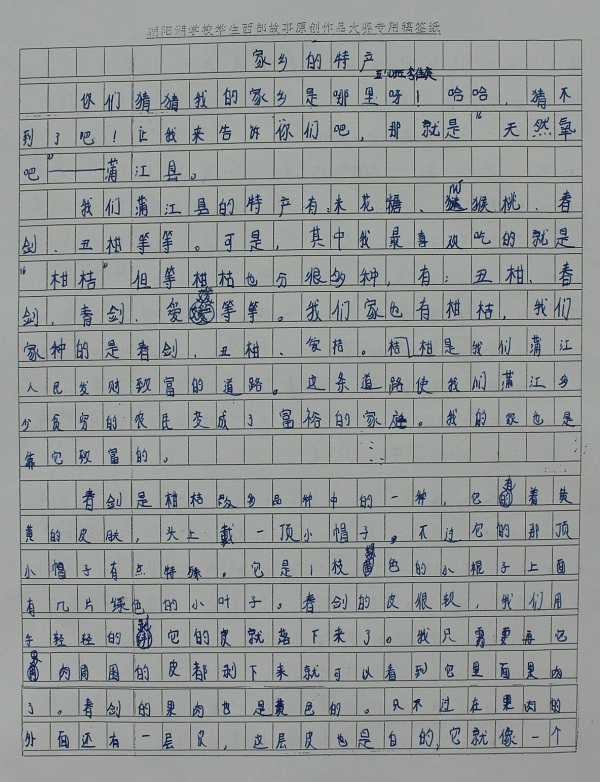 朝阳湖学校学生西部故事原创作品大赛专用稿签纸
家乡的特产
你们猜猜我的家乡是哪里呀！哈哈，猜不
到了吧！让我来告诉你们吧，那就是“天然氧
吧”——蒲江县。
我们蒲江县的特产有：米花糖、猕猴桃、春
剑、丑柑等等。可是，其中我最喜欢吃的就是
“柑桔”但等柑桔也分很多种，有：丑柑、春
剑、青剑、爱媛等等。我们家也有柑桔，我们
家种的是春剑、丑柑、爱桔。桔柑是我们蒲江
人民发财致富的道路。这条道路使我们蒲江多
少贫穷的农民变成了富裕的家庭。我的家也是
靠它致富的。
春剑是柑桔众多品种中的一种，它穿着黄
黄的皮肤，头上戴一顶小帽子。不过它的那顶
小帽子有点特殊。它是1枝绿色的小棍子上面
有几片绿色的小叶子。春剑的皮很软，我们用
手轻轻的它的皮就落下来了。我只需要再把
果肉周围的皮都剥下来就可以看到它里面果肉
了。春剑的果肉也是黄色的。只不过在果肉的
外面还有一层皮，这层皮也是白的，它就像一个